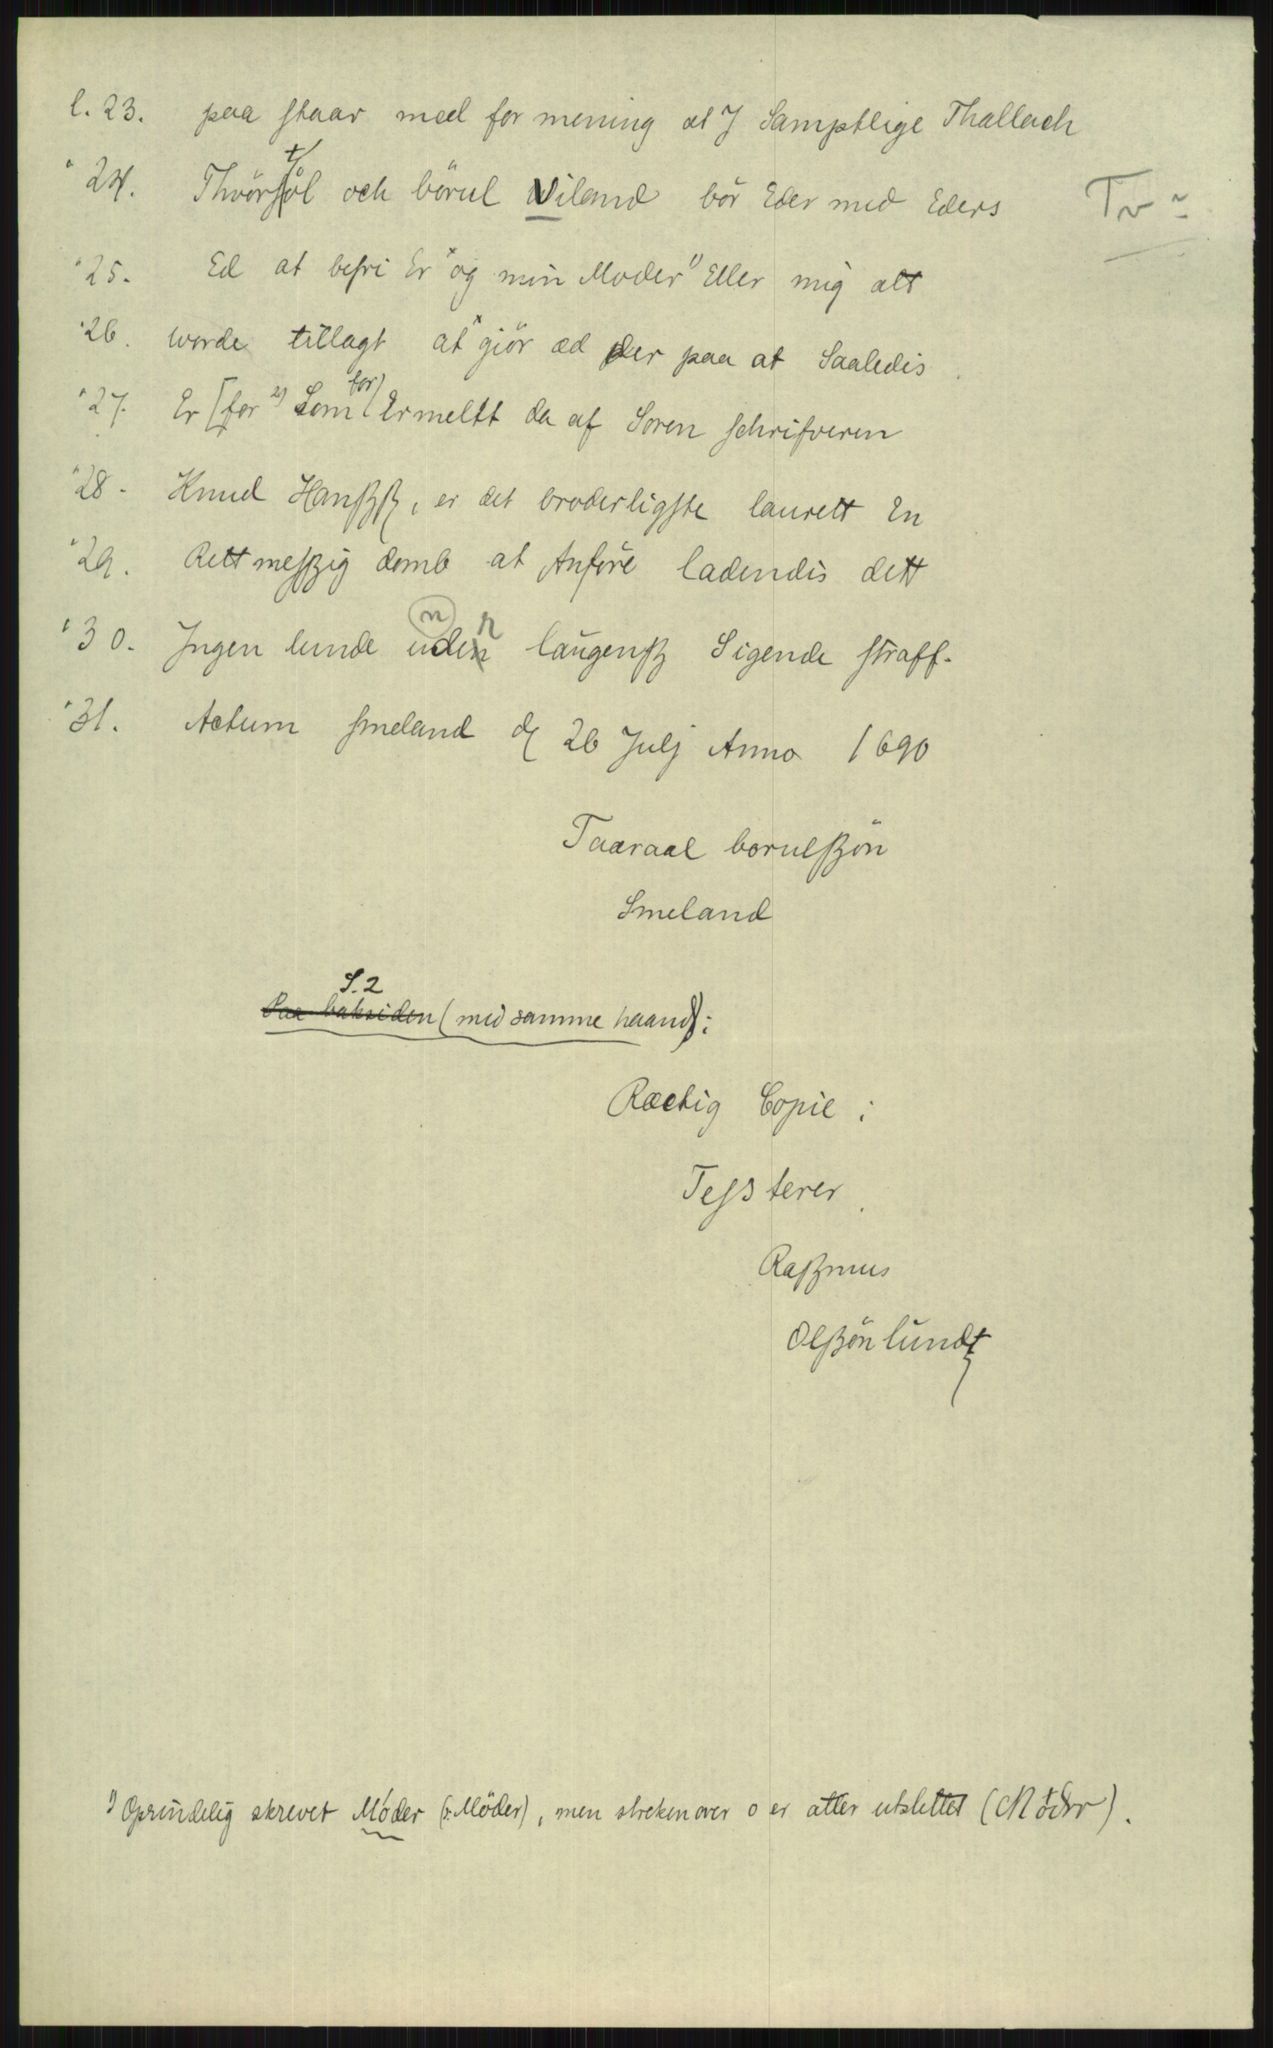 l. 23. paa staar med for mening at J Samptlige Thallach
" 24. Thvörsöl och börul Wiland bör Eder med Eders
" 25. Ed at befri Er "og min Moder" Eller mig alt
" 26. worde tillagt at giör æd der paa at Saaledis
" 27. Er [for 2) Som for) Ermeltt da af Soren schrifveren
" 28. Knud Hanßß, er det broderligste laurett En
" 29. Rettmeßzig domb at Anföre ladendis dett
" 30. Jngen lunde uden laugenß Sigende straff.
" 31. Actum smeland d 26 Julj Anno 1690
Taaraal borulßön
Smeland
S. 2
Paa baksiden (med samme haand):
Ræctig Copie :
Teßterer
Raßmus
Olßön lundt
1) Oprindelig skrevet Móder (ɔ: Möder), men streken over o er atter utslettet (Moder).